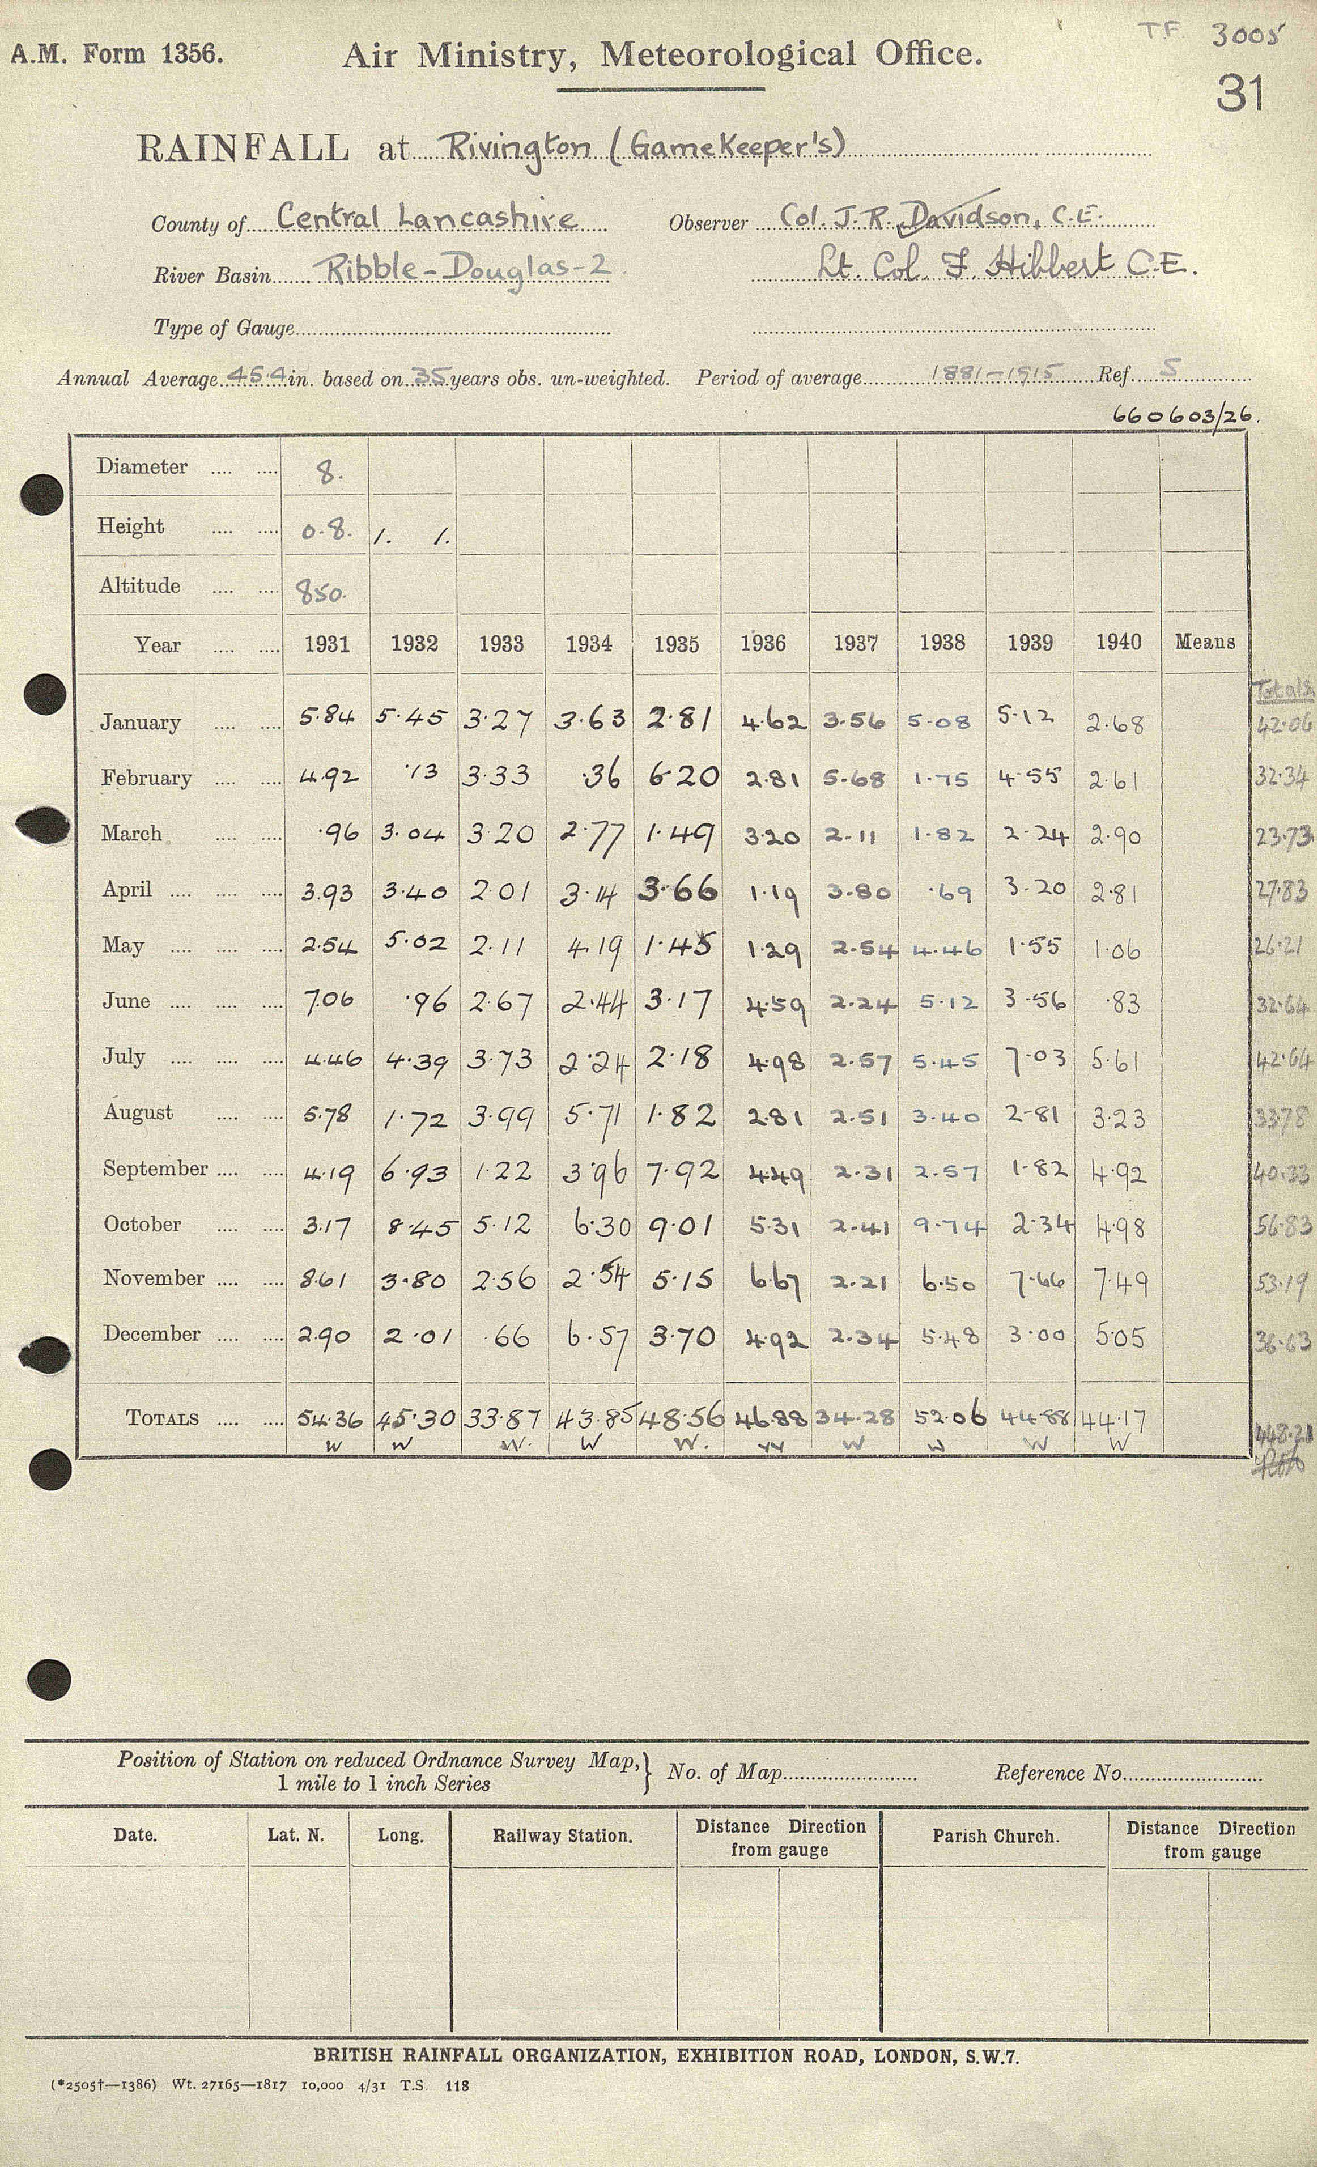 T.F. 3005
A.M. Form 1356. Air Ministry, Meteorological Office.
31
RAINFALL at Rivington (GameKeeper's)
County of Central Lancashire Observer Col. J. R. Davidson, C.E.
River Basin Ribble-Douglas-2. Lt. Col. F. Hibbert C.E.
Type of Gauge
Annual Average 45.4 in. based on 35 years obs. un-weighted. Period of average 1881-1915 Ref. 5
660603/26.
Diameter 8.
Height 0.8. 1. 1.
Altitude 850.
Year 1931 1932 1933 1934 1935 1936 1937 1938 1939 1940 Means
Totals
January 5.84 5.45 3.27 3.63 2.81 4.62 3.56 5.08 5.12 2.68 42.06
February 4.92 .13 3.33 .36 6.20 2.81 5.68 1.75 4.55 2.61 32.34
March .96 3.04 3.20 2.77 1.49 3.20 2.11 1.82 2.24 2.90 23.73
April 3.93 3.40 2.01 3.14 3.66 1.19 3.80 .69 3.20 2.81 27.83
May 2.54 5.02 2.11 4.19 1.45 1.29 2.54 4.46 1.55 1.06 26.21
June 7.06 .96 2.67 2.44 3.17 4.59 2.24 5.12 3.56 .83 32.64
July 4.46 4.39 3.73 2.24 2.18 4.98 2.57 5.45 7.03 5.61 42.64
August 5.78 1.72 3.99 5.71 1.82 2.81 2.51 3.40 2.81 3.23 33.78
September 4.19 6.93 1.22 3.96 7.92 4.49 2.31 2.57 1.82 4.92 40.33
October 3.17 8.45 5.12 6.30 9.01 5.31 2.41 9.74 2.34 4.98 56.83
November 8.61 3.80 2.56 2.54 5.15 6.67 2.21 6.50 7.66 7.49 53.19
December 2.90 2.01 .66 6.57 3.70 4.92 2.34 5.48 3.00 5.05 36.63
TOTALS 54.36 45.30 33.87 43.85 48.56 46.88 34.28 52.06 44.88 44.17 448.21
W W W. W W. W W W W W
Position of Station on reduced Ordnance Survey Map, } No. of Map Reference No.
1 mile to 1 inch Series
Date. Lat. N. Long. Railway Station. Distance Direction from gauge Parish Church. Distance Direction from gauge
BRITISH RAINFALL ORGANIZATION, EXHIBITION ROAD, LONDON, S.W.7.
(*2505†—1386) Wt. 27165—1817 10,000 4/31 T.S. 118